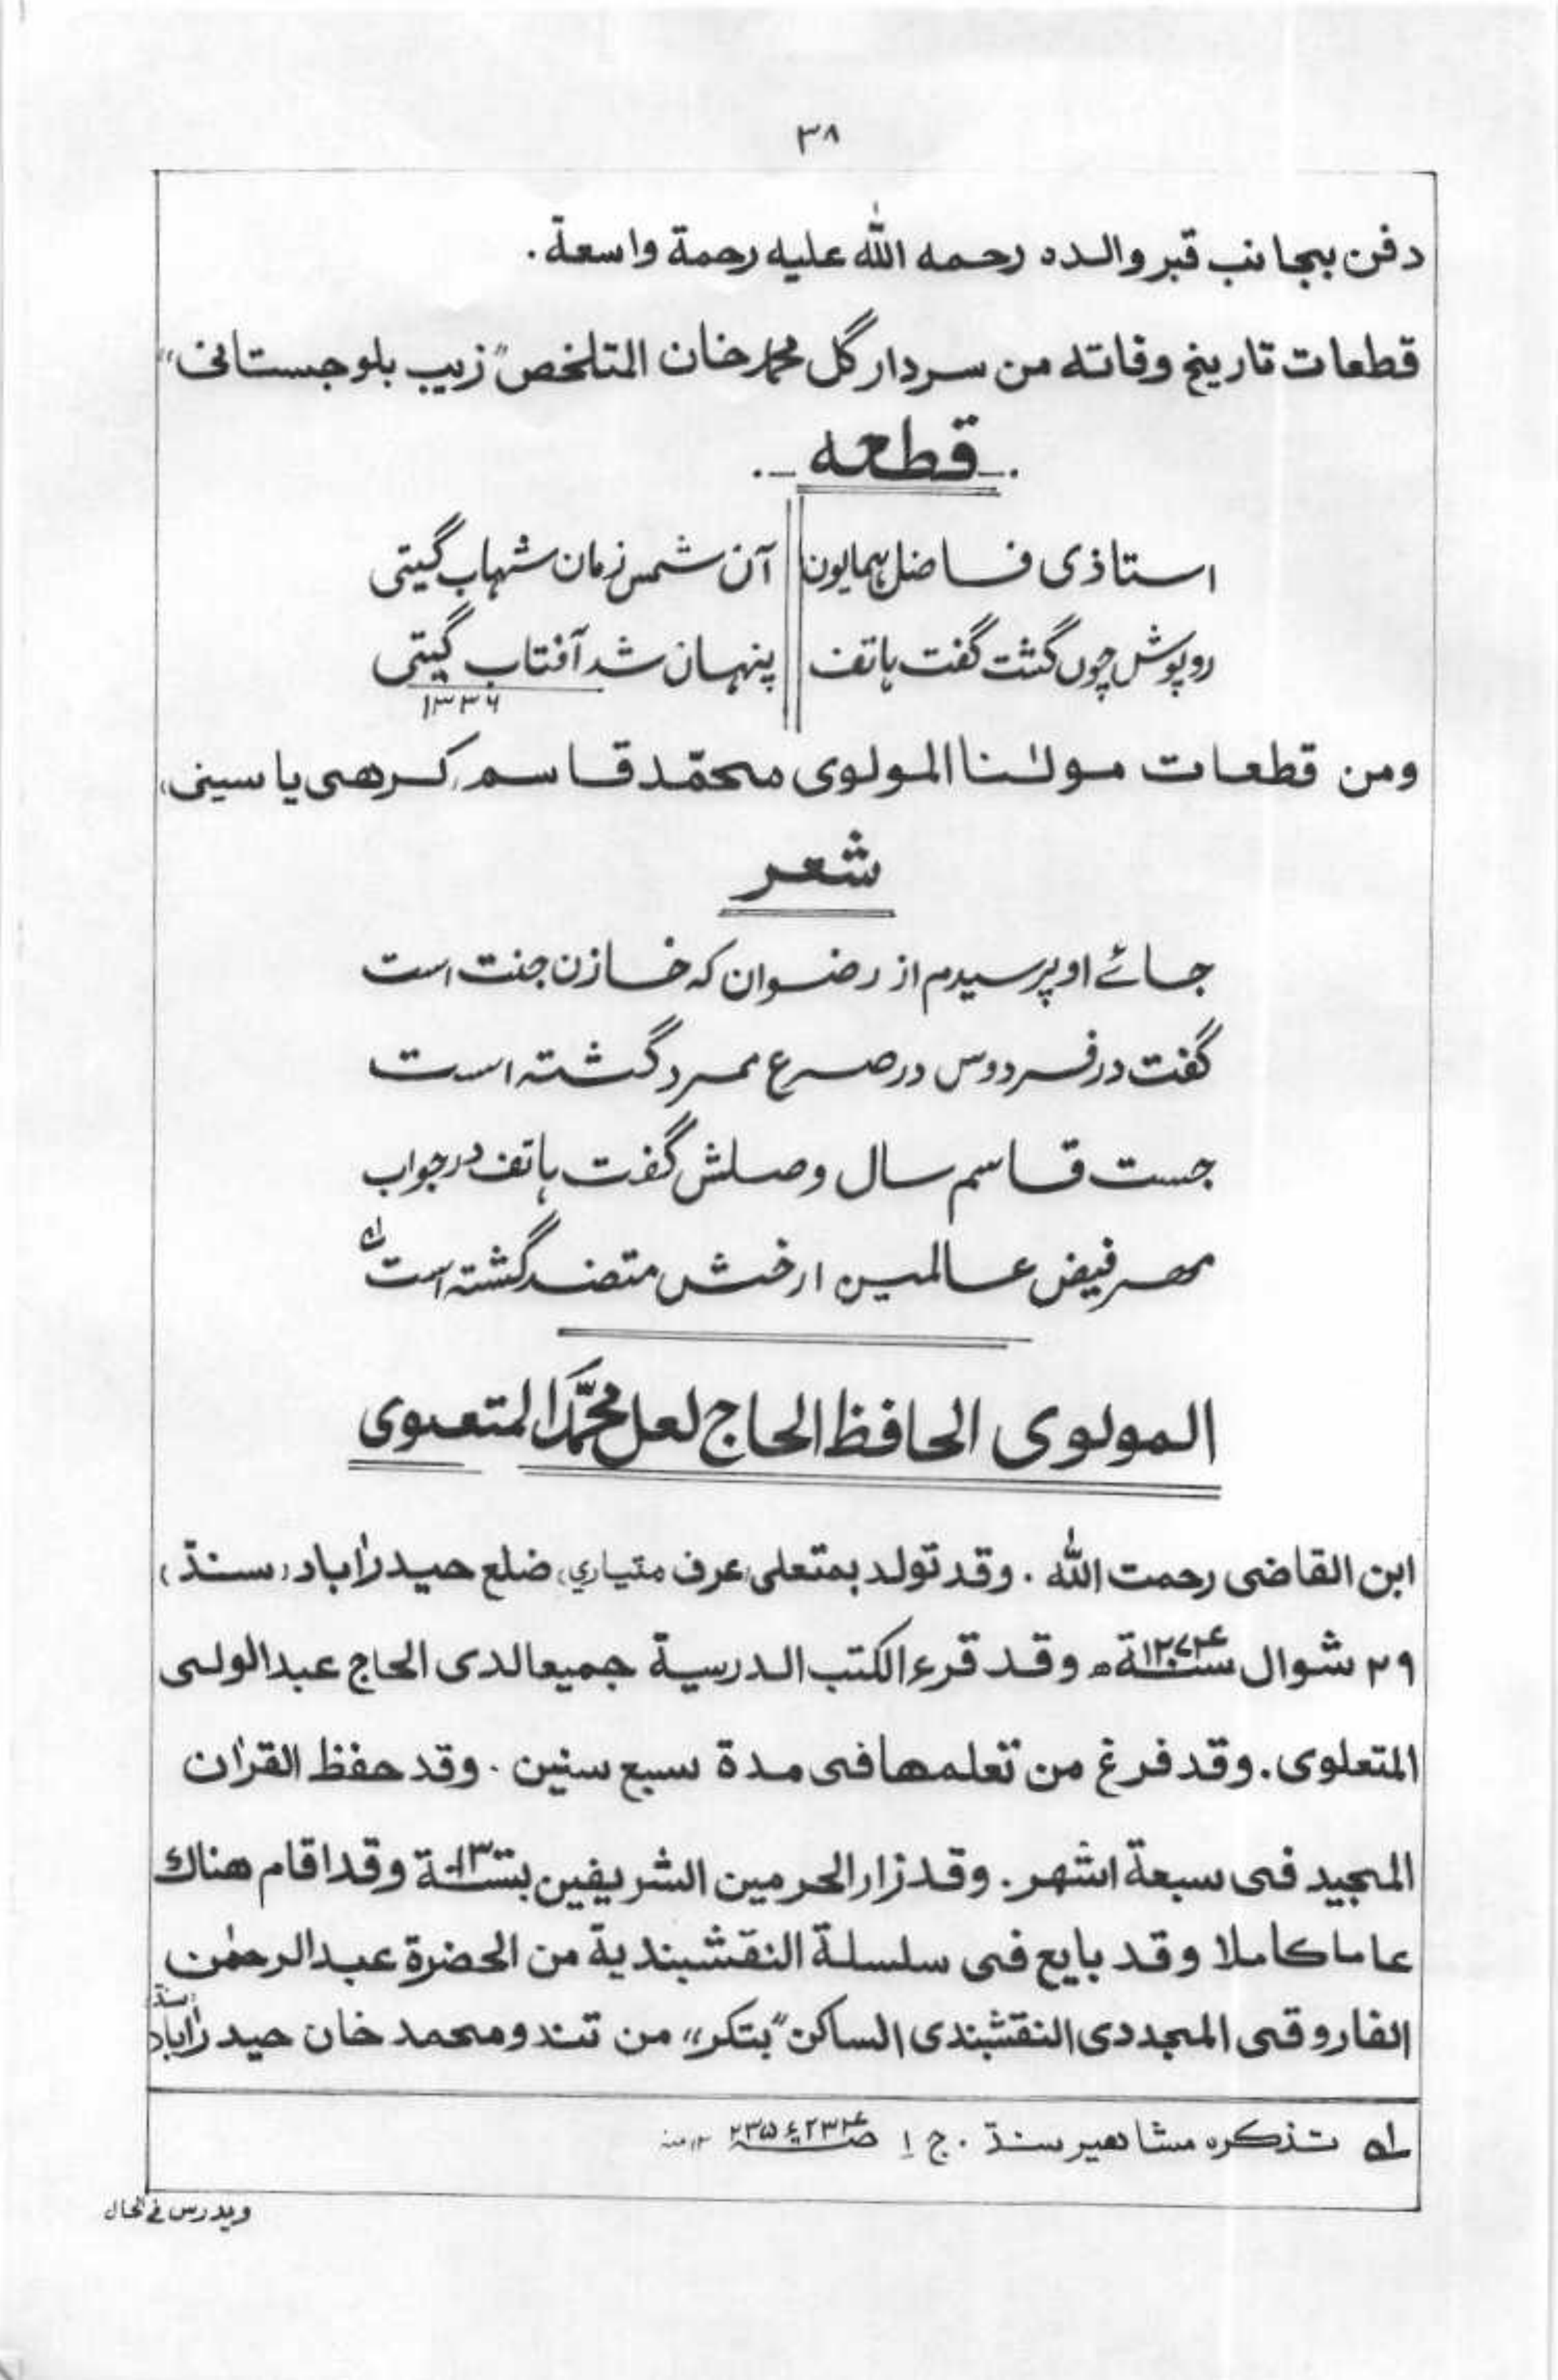 ۳۸
دفن بجانب قبر والده رحمه الله عليه رحمة واسعة.
قطعات تاريخ وفاته من سردار گل محمد خان المتلخص "زيب بلوجستانی"
قطعه
استاذی فاضل ہمایون آن شمس زمان شہاب گیتی
روپوش چوں گشت گفت ہاتف پنہان شد آفتاب گیتی
۱۳۳۶
ومن قطعات مولٰنا المولوی محمّد قاسم، کرهی یاسینی،
شعر
جائے او پرسیدم از رضوان کہ خازن جنت است
گفت در فردوس در صرع ممرد گشتہ است
جست قاسم سال وصلش گفت ہاتف در جواب
مهر فیض عالمین ارخش متضد گشتہ است ؂۱
المولوی الحافظ الحاج لعل محمّد المتعلوی
ابن القاضی رحمت الله . وقد تولد بمتعلی (عرف متياري) ضلع حیدرآباد (سنڌ)
۲۹ شوال سنة ۱۲۷۴ھ وقد قرء الکتب الدرسیة جمیعا لدی الحاج عبد الولی
المتعلوی. وقد فرغ من تعلمها فی مدة سبع سنین . وقد حفظ القرٰان
المجید فی سبعة اشهر. وقد زار الحرمین الشریفین بسنة وقد اقام هناك
عاما کاملا وقد بایع فی سلسلة النقشبندیة من الحضرة عبد الرحمٰن
الفاروقی المجددی النقشبندی الساکن "بتکر" من تندو محمد خان حیدرآباد سنڌ
؂۱ تذکره مشاهیر سنڌ . ج ۱ صـ ۲۳۴ ع ۲۳۵ ۱۲ منه
ویدرس فی الحال